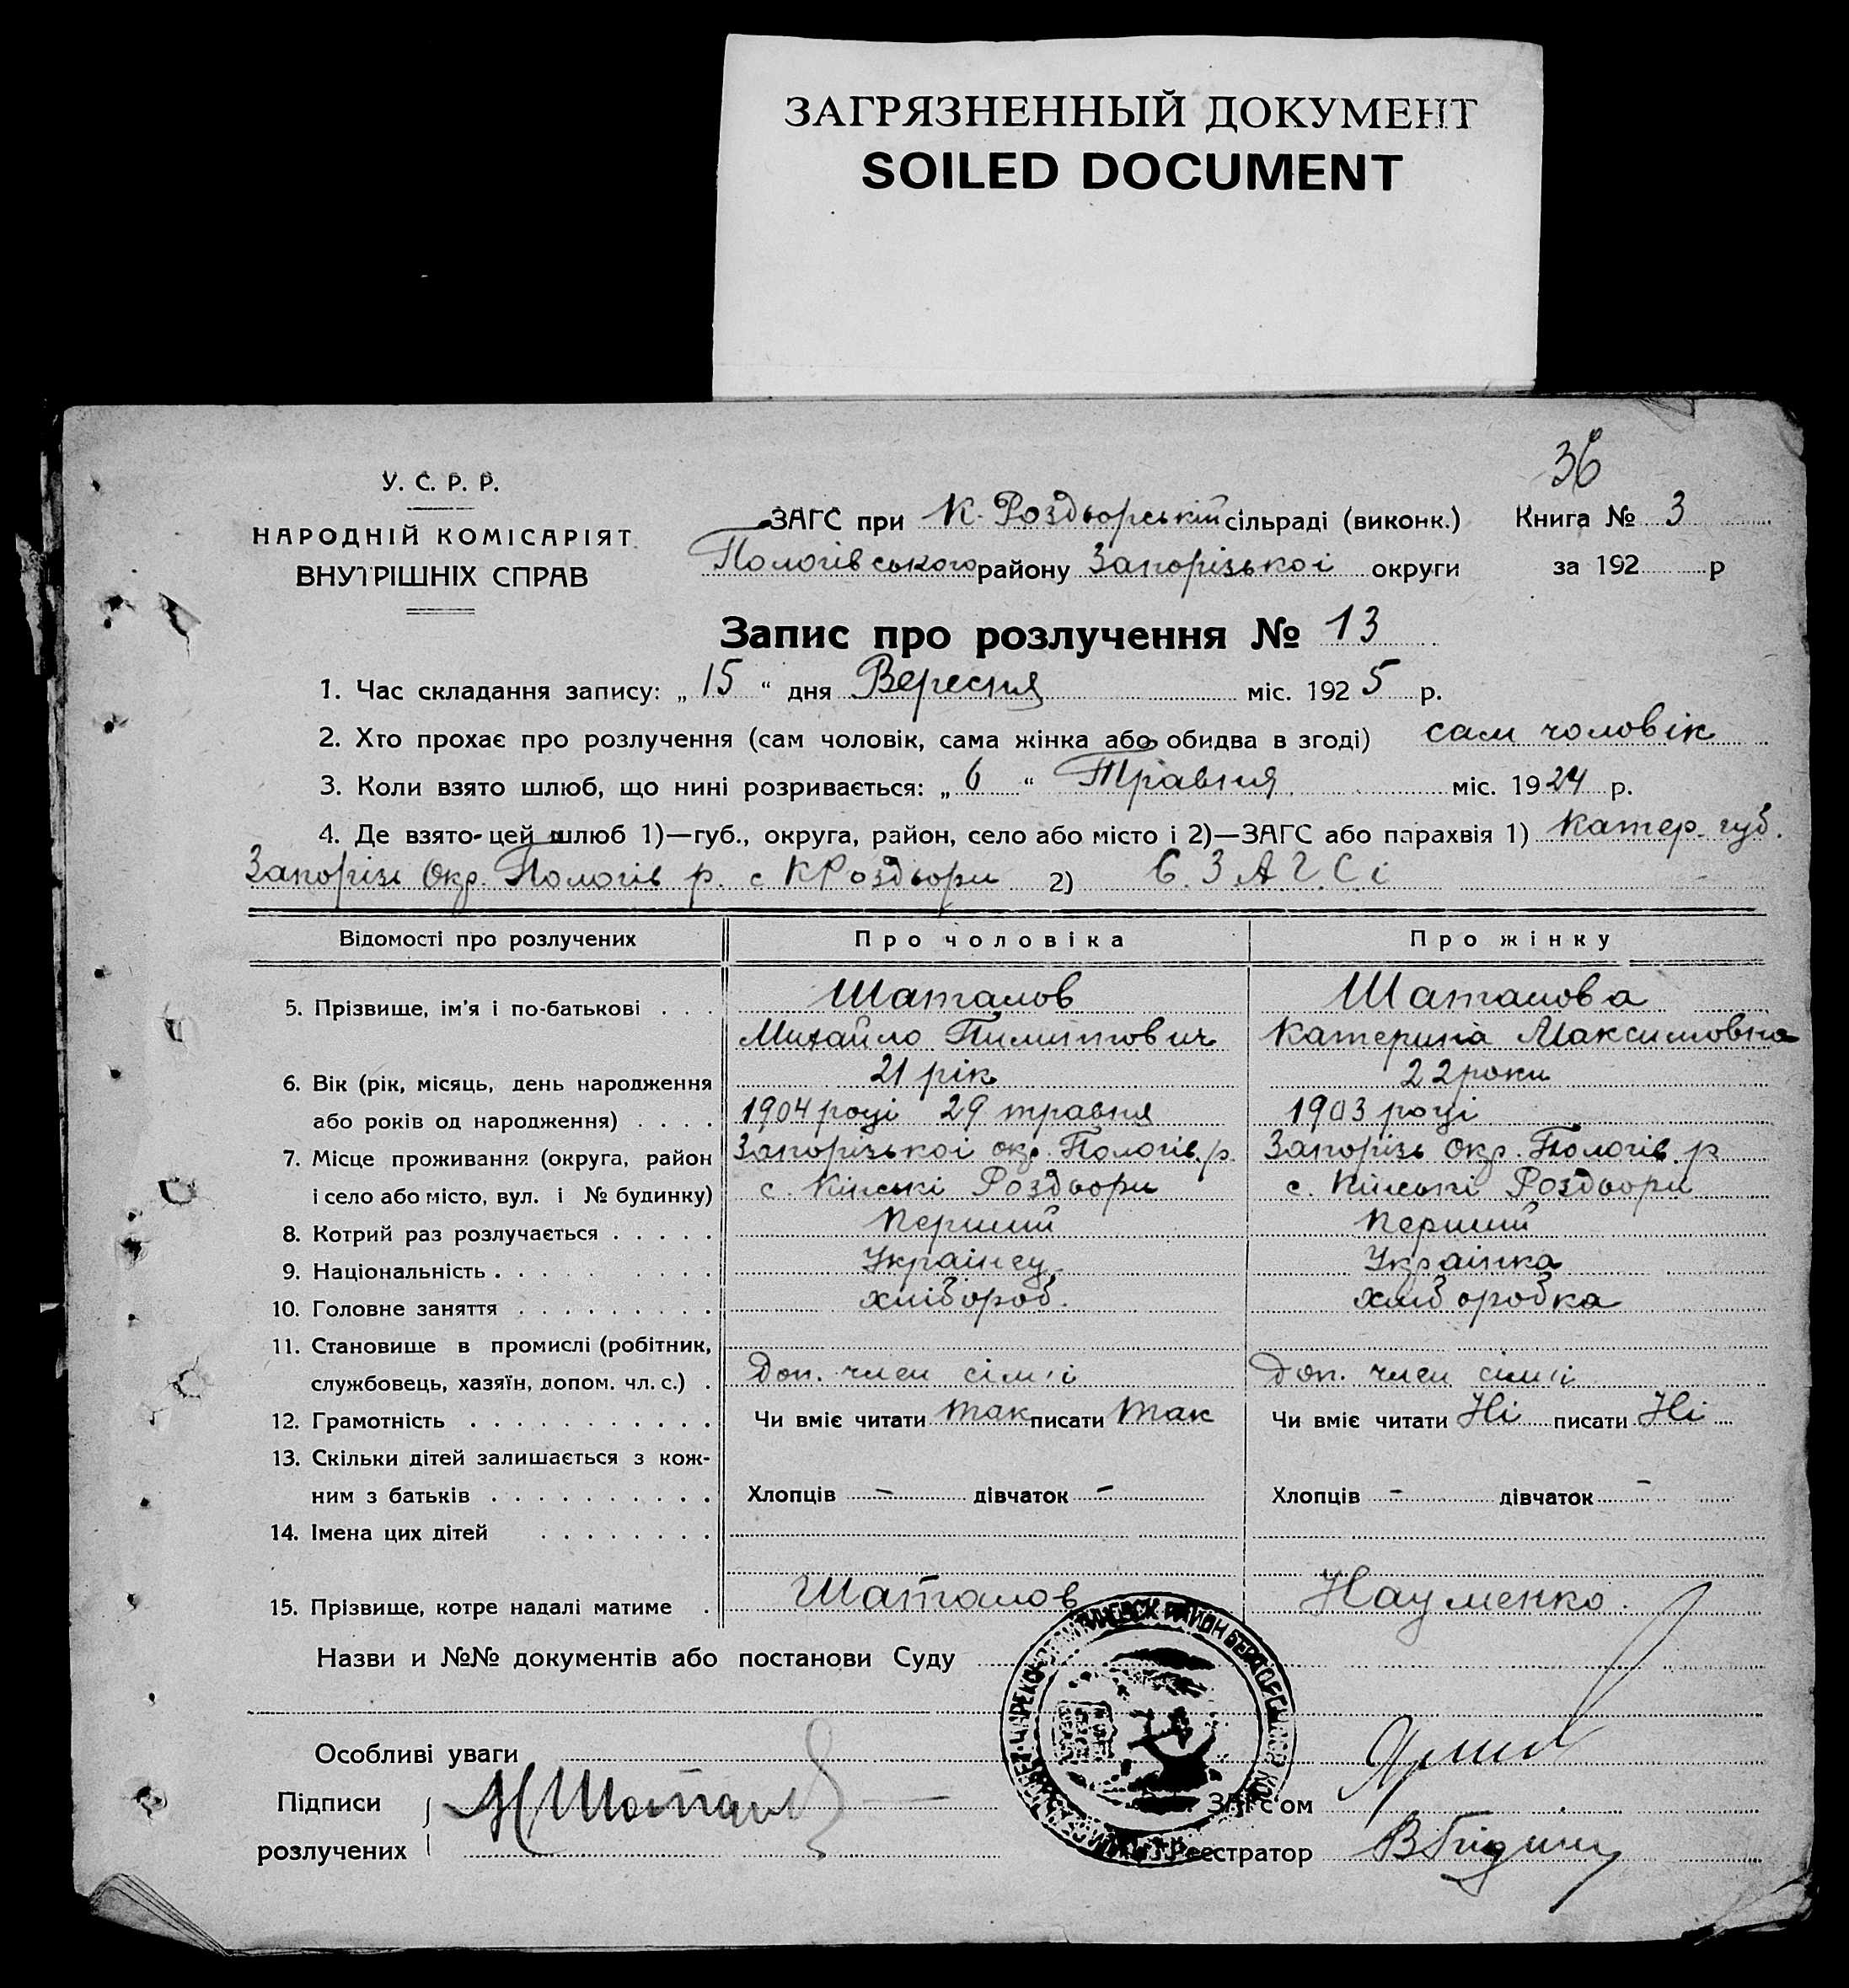 ЗАГРЯЗНЕННЫЙ ДОКУМЕНТ
SOILED DOCUMENT
36
У. С. Р. Р.
НАРОДНІЙ КОМІСАРІЯТ
ВНУТРІШНІХ СПРАВ
ЗАГС при К. Роздорській сільраді (виконк.) Книга № 3
Пологівського району Запорізькоі округи за 192 р
Запис про розлучення № 13
1. Час складання запису: „ 15 “ дня Вересня міс. 192 5 р.
2. Хто прохає про розлучення (сам чоловік, сама жінка або обидва в згоді) сам чоловік
3. Коли взято шлюб, що нині розривається: „ 6 “ Травня міс. 19 24 р.
4. Де взято цей шлюб 1)—губ., округа, район, село або місто і 2)—ЗАГС або парахвія 1) Катер. губ.
Запоріз Окр. Пологів р. с К Роздори 2) ЗАГСі
Відомості про розлучених Про чоловіка Про жінку
5. Прізвище, ім'я і по-батькові . . . Шаталов Шаталова
Михайло Катерина Максимовна
6. Вік (рік, місяць, день народження 21 рік 22 роки
або років од народження) . . . . 1904 році 29 травня 1903 році
7. Місце проживання (округа, район Запорізькоі окр. Пологів. р. Запорізь Окр. Пологів. р
і село або місто, вул. і № будинку) с. Кінські Роздори с. Кінські Роздори
8. Котрий раз розлучається . . . . . Перший Перший
9. Національність . . . . . . . . . Українец Українка
10. Головне заняття . . . . . . . . . хлібороб. хліборобка
11. Становище в промислі (робітник,
службовець, хазяїн, допом. чл. с.) . Доп. член сімʼі Доп. член сімʼі
12. Грамотність . . . . . . . . . . . Чи вміє читати так писати так Чи вміє читати Ні писати Ні
13. Скільки дітей залишається з кож-
ним з батьків . . . . . . . . . . Хлопців – дівчаток – Хлопців – дівчаток –
14. Імена цих дітей . . . . . . . .
15. Прізвище, котре надалі матиме . Шаталов Науменко.
Назви и №№ документів або постанови Суду
Особливі уваги
Підписи М Шаталов ЗАГС'ом
розлучених Реєстратор